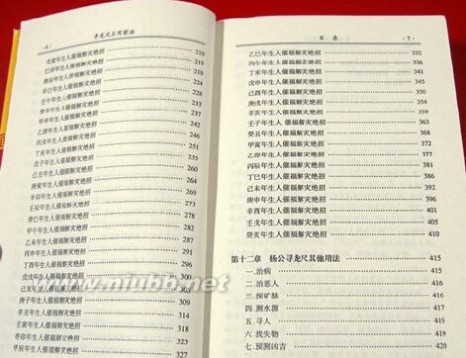 寻龙尺应用秘法
戊寅年生人催福解灾绝招 210
己卯年生人催福解灾绝招 219
辛巳年生人催福解灾绝招
甲申年生人催福解灾绝招 242
乙酉年生人催福解灾绝招 246
丙戌年生人催福解灾绝招 251
丁亥年生人催福解灾绝招
戊子年生人催福解灾绝招
己丑年生人催福解灾绝招
庚寅年生人催福解灾绝招
辛卯年生人催福解灾绝招
壬辰年生人催福解灾绝招
癸巳年生人催福解灾绝招
甲午年生人催福解灾绝招
乙未年生人催福解灾绝招
丙申年生人催福解灾绝招
丁酉年生人催福解灾绝招 296
戊戌年生人催福解灾绝招
己亥年生人催福解灾绝招
庚子年生人催福解灾绝招
辛丑年生人催福解灾绝招
壬寅年生人催福解灾绝招
癸卯年生人催福解灾绝招
甲辰年生人催福解灾绝招 327
目录
乙巳年生人催福解灾绝招 331
丙午年生人催福解灾绝招 336
丁未年生人催福解灾绝招 341
戊申年生人催福解灾绝招 345
己酉年生人催福解灾绝招
庚戌年生人催福解灾绝招
辛亥年生人催福解灾绝招
壬子年生人催福解灾绝招 363
癸丑年生人催福解灾绝招 368
甲寅年生人催福解灾绝招 372
乙卯年生人催福解灾绝招 377
丙辰年生人催福解灾绝招
丁巳年生人催福解灾绝招 386
己未年生人催福解灾绝招 392
庚申年生人催福解灾绝招 396
辛酉年生人催福解灾绝招 401
壬戌年生人催福解灾绝招 405
癸亥年生人催福解灾绝招 410
第十二章 杨公寻龙尺其他用法 415
一.治病 415
二.治恶人 416
三.探矿脉 416
四.测水源 417
五.寻人 417
六.找失物
七.预测凶吉 420
www.niubb.net